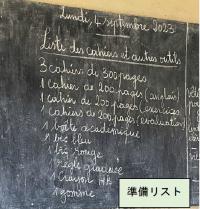 Lundi, 4 septembre 2023
Liste des cahiers et autres outils
3 cahiers de 300 pages
1 cahier de 200 pages (anglais)
1 cahier de 200 pages (exercices
1 cahiers de 200 pages (evaluation)
1 boîte académique
1 bic bleu
1 bic rouge
1 crayon HB
1 gomme
準備リスト